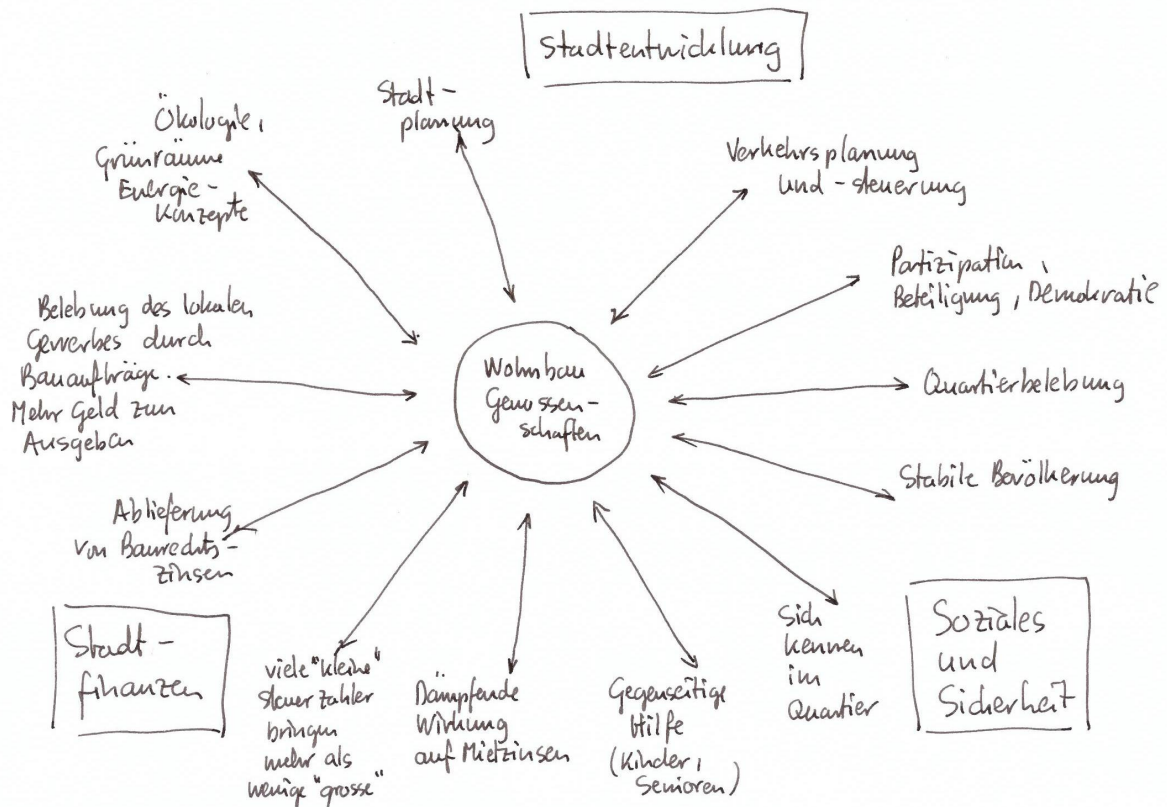 Stadtentwicklung
Stadt-
planung
Ökologie,
Grünräume
Energie-
Konzepte
Verkehrsplanung
und -steuerung
Partizipation,
Beteiligung, Demokratie
Belebung des lokalen
Gewerbes durch
Bauaufträge.
Mehr Geld zum
Ausgeben
Wohnbau
Genossen-
schaften
Quartierbelebung
Stabile Bevölkerung
Ablieferung
von Baurechts-
zinsen
Stadt-
finanzen
viele "kleine"
Steuerzahler
bringen
mehr als
wenige "grosse"
Dämpfende
Wirkung
auf Mietzinsen
Gegenseitige
Hilfe
(Kinder,
Senioren)
Sich
kennen
im
Quartier
Soziales
und
Sicherheit